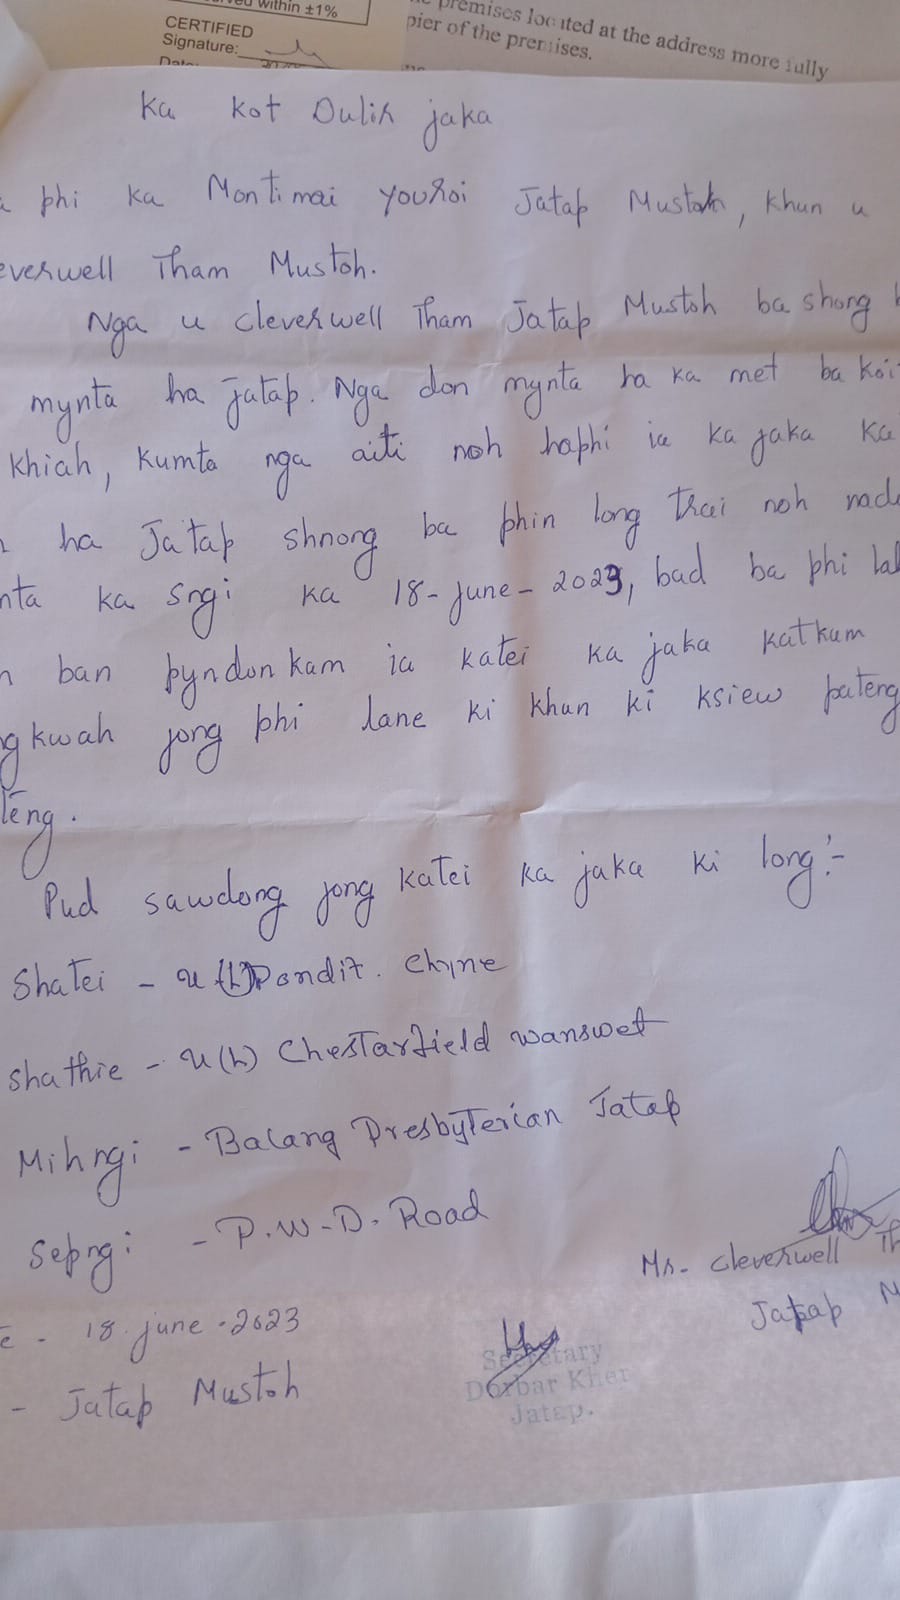 within ±1%
CERTIFIED
Signature:
premises located at the address more fully
pier of the premises.
Ka kot Dulir jaka
phi ka Montimai youroi Jatap Mustoh, khun u
everwell Tham Mustoh.
Nga u cleverwell Tham Jatap Mustoh ba shong
mynta ha jatap. Nga don mynta ha ka met ba koit
khiah, kumta nga aiti noh haphi ia ka jaka ka
ha Jatap shnong ba phin long trai noh nad
nta ka sngi ka 18-june-2023, bad ba phi lah
ban pyndonkam ia katei ka jaka katkum
gkwah jong phi lane ki khun ki ksiew pateng
teng.
Pud sawdong jong katei ka jaka ki long:-
Shatei - u (L) Pondit. Chyne
shathie - u(L) Chestarfield wanswet
Mihngi - Balang Presbyterian Jatap
Sepngi - P.W-D. Road
Mr. cleverwell Th
Jatap M
e - 18 june-2023
- Jatap Mustoh
Secretary
Dorbar Kher
Jatap.